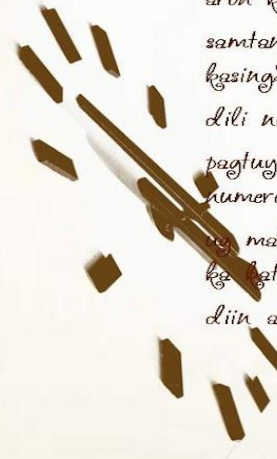 samtan
kasing
dili n
pagtuy
numer
ug ma
ka kat
diin a